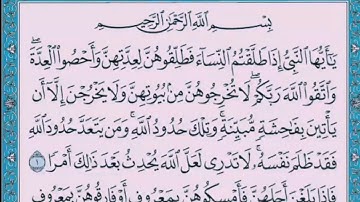 بِسْمِ اللَّهِ الرَّحْمَٰنِ الرَّحِيمِ
يَا أَيُّهَا النَّبِيُّ إِذَا طَلَّقْتُمُ النِّسَاءَ فَطَلِّقُوهُنَّ لِعِدَّتِهِنَّ وَأَحْصُوا الْعِدَّةَ ۖ
وَاتَّقُوا اللَّهَ رَبَّكُمْ ۖ لَا تُخْرِجُوهُنَّ مِنْ بُيُوتِهِنَّ وَلَا يَخْرُجْنَ إِلَّا أَنْ
يَأْتِينَ بِفَاحِشَةٍ مُبَيِّنَةٍ ۚ وَتِلْكَ حُدُودُ اللَّهِ ۚ وَمَنْ يَتَعَدَّ حُدُودَ اللَّهِ
فَقَدْ ظَلَمَ نَفْسَهُ ۚ لَا تَدْرِي لَعَلَّ اللَّهَ يُحْدِثُ بَعْدَ ذَٰلِكَ أَمْرًا ١
فَإِذَا بَلَغْنَ أَجَلَهُنَّ فَأَمْسِكُوهُنَّ بِمَعْرُوفٍ أَوْ فَارِقُوهُنَّ بِمَعْرُوفٍ